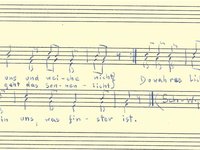 uns und wei-che nicht, Du wahres Lic
geht das Son-nen-licht,
in uns, was fin-ster ist.